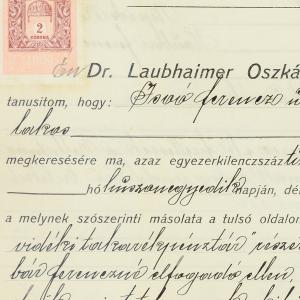 2
KORONA
Én Dr. Laubhaimer Oszká
tanusitom, hogy: Joó ferencz ú
lakos
megkeresésére ma, azaz egyezerkilenczszáz ti
hó huszonegyedik napján, dé
a melynek szószerinti másolata a tulsó oldalon
vidéki takarékpénztár" részé
bár ferenczné elfogadó ellen,